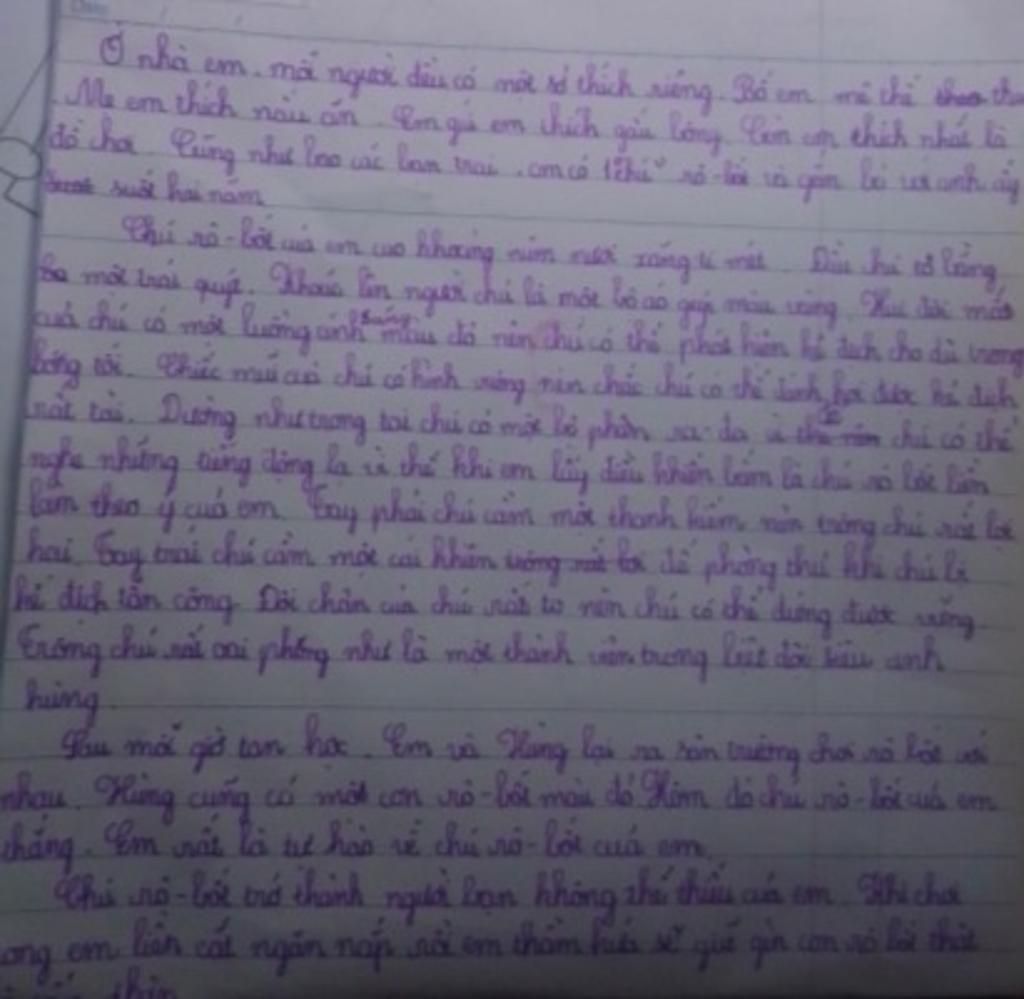 Ở nhà em, mỗi người đều có một sở thích riêng. Bố em mê thể thao
Mẹ em thích nấu ăn. Em gái em thích gấu bông. Còn em thích nhất là
đồ chơi. Cũng như bao các bạn trai, em có 1 "chú" rô-bốt và gắn bó với anh ấy
suốt hai năm
Chú rô-bốt của em cao khoảng năm mươi xăng ti mét. Đầu chú to bằng
ba một trái quýt. Khoác lên người chú là một bộ áo giáp màu vàng. Hai đôi mắt
của chú có một luồng ánh sáng màu đỏ nên chú có thể phát hiện kẻ địch cho dù trong
bóng tối. Chiếc mũi của chú có hình vuông nên chắc chú có thể đánh hơi được kẻ địch
rất tài. Dường như trong tai chú có một bộ phận ra-đa vì thế nên chú có thể
nghe những tiếng động lạ vì thế khi em lấy điều khiển bấm là chú rô bốt liền
làm theo ý của em. Tay phải chú cầm một thanh kiếm nên trông chú rất lợi
hại. Tay trái chú cầm một cái khiên trông rất lợi để phòng thủ khi chú bị
kẻ địch tấn công. Đôi chân của chú rất to nên chú có thể đứng được vững.
Trông chú rất oai phong như là một thành viên trong biệt đội siêu anh
hùng.
Sau mỗi giờ tan học. Em và Hùng lại ra sân trường chơi rô bốt với
nhau. Hùng cũng có một con rô-bốt màu đỏ. Hôm đó chú rô-bốt của em
thắng. Em rất là tự hào về chú rô-bốt của em.
Chú rô-bốt trở thành người bạn không thể thiếu của em. Khi chơi
ong em liền cất ngăn nắp rồi em thầm hứa sẽ giữ gìn con rô bốt thật